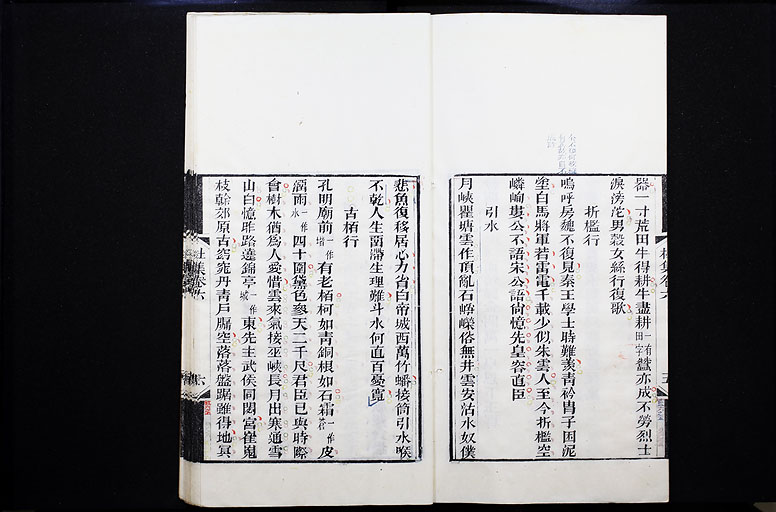 器一寸荒田牛得耕牛盡耕一有田字蠶亦成不勞烈士
淚滂沱男穀女絲行復歌
折檻行
嗚呼房魏不復見秦王學士時難羨青衿冑子困泥
塗白馬將軍若雷電千載少似朱雲人至今折檻空
嶙峋婁公不語宋公語尚憶先皇容直臣
引水
月峽瞿塘雲作頂亂石崢嶸俗無井雲安沽水奴僕
悲魚復移居心力省白帝城西萬竹蟠接筒引水喉
不乾人生留滯生理難斗水何直百憂寬
古栢行
孔明廟前一作堦有老栢柯如青銅根如石霜一作蒼皮
溜雨一作水四十圍黛色參天二千尺君臣已與時際
會樹木猶爲人愛惜雲來氣接巫峽長月出寒通雪
山白憶昨路遶錦亭一作城東先主武侯同閟宮崔嵬
枝幹郊原古窈窕丹青戶牖空落落盤踞雖得地冥
杜集卷六